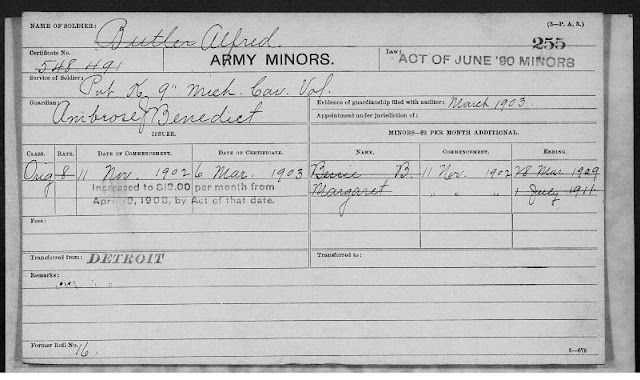 NAME OF SOLDIER: Butler Alfred. (3—P. A. S.)
255
Certificate No. 548.491 ARMY MINORS. Law: ACT OF JUNE '90 MINORS
Service of Soldier: Pvt. K, 9" Mich. Cav. Vol.
Guardian: Ambrose J Benedict
Evidence of guardianship filed with auditor: March 1903.
Appointment under jurisdiction of:
ISSUES.
MINORS—$2 PER MONTH ADDITIONAL.
CLASS. RATE. DATE OF COMMENCEMENT. DATE OF CERTIFICATE. NAME. COMMENCEMENT. ENDING.
Orig 8 11 Nov. 1902 6 Mar. 1903 B. 11 Nov. 1902 28 Mar 1909
Increased to $12.00 per month from Margaret " " " 1 July 1911
April 19, 1908, by Act of that date.
Fees:
Transferred from: DETROIT Transferred to:
Remarks:
Former Roll No. 16. 6—678